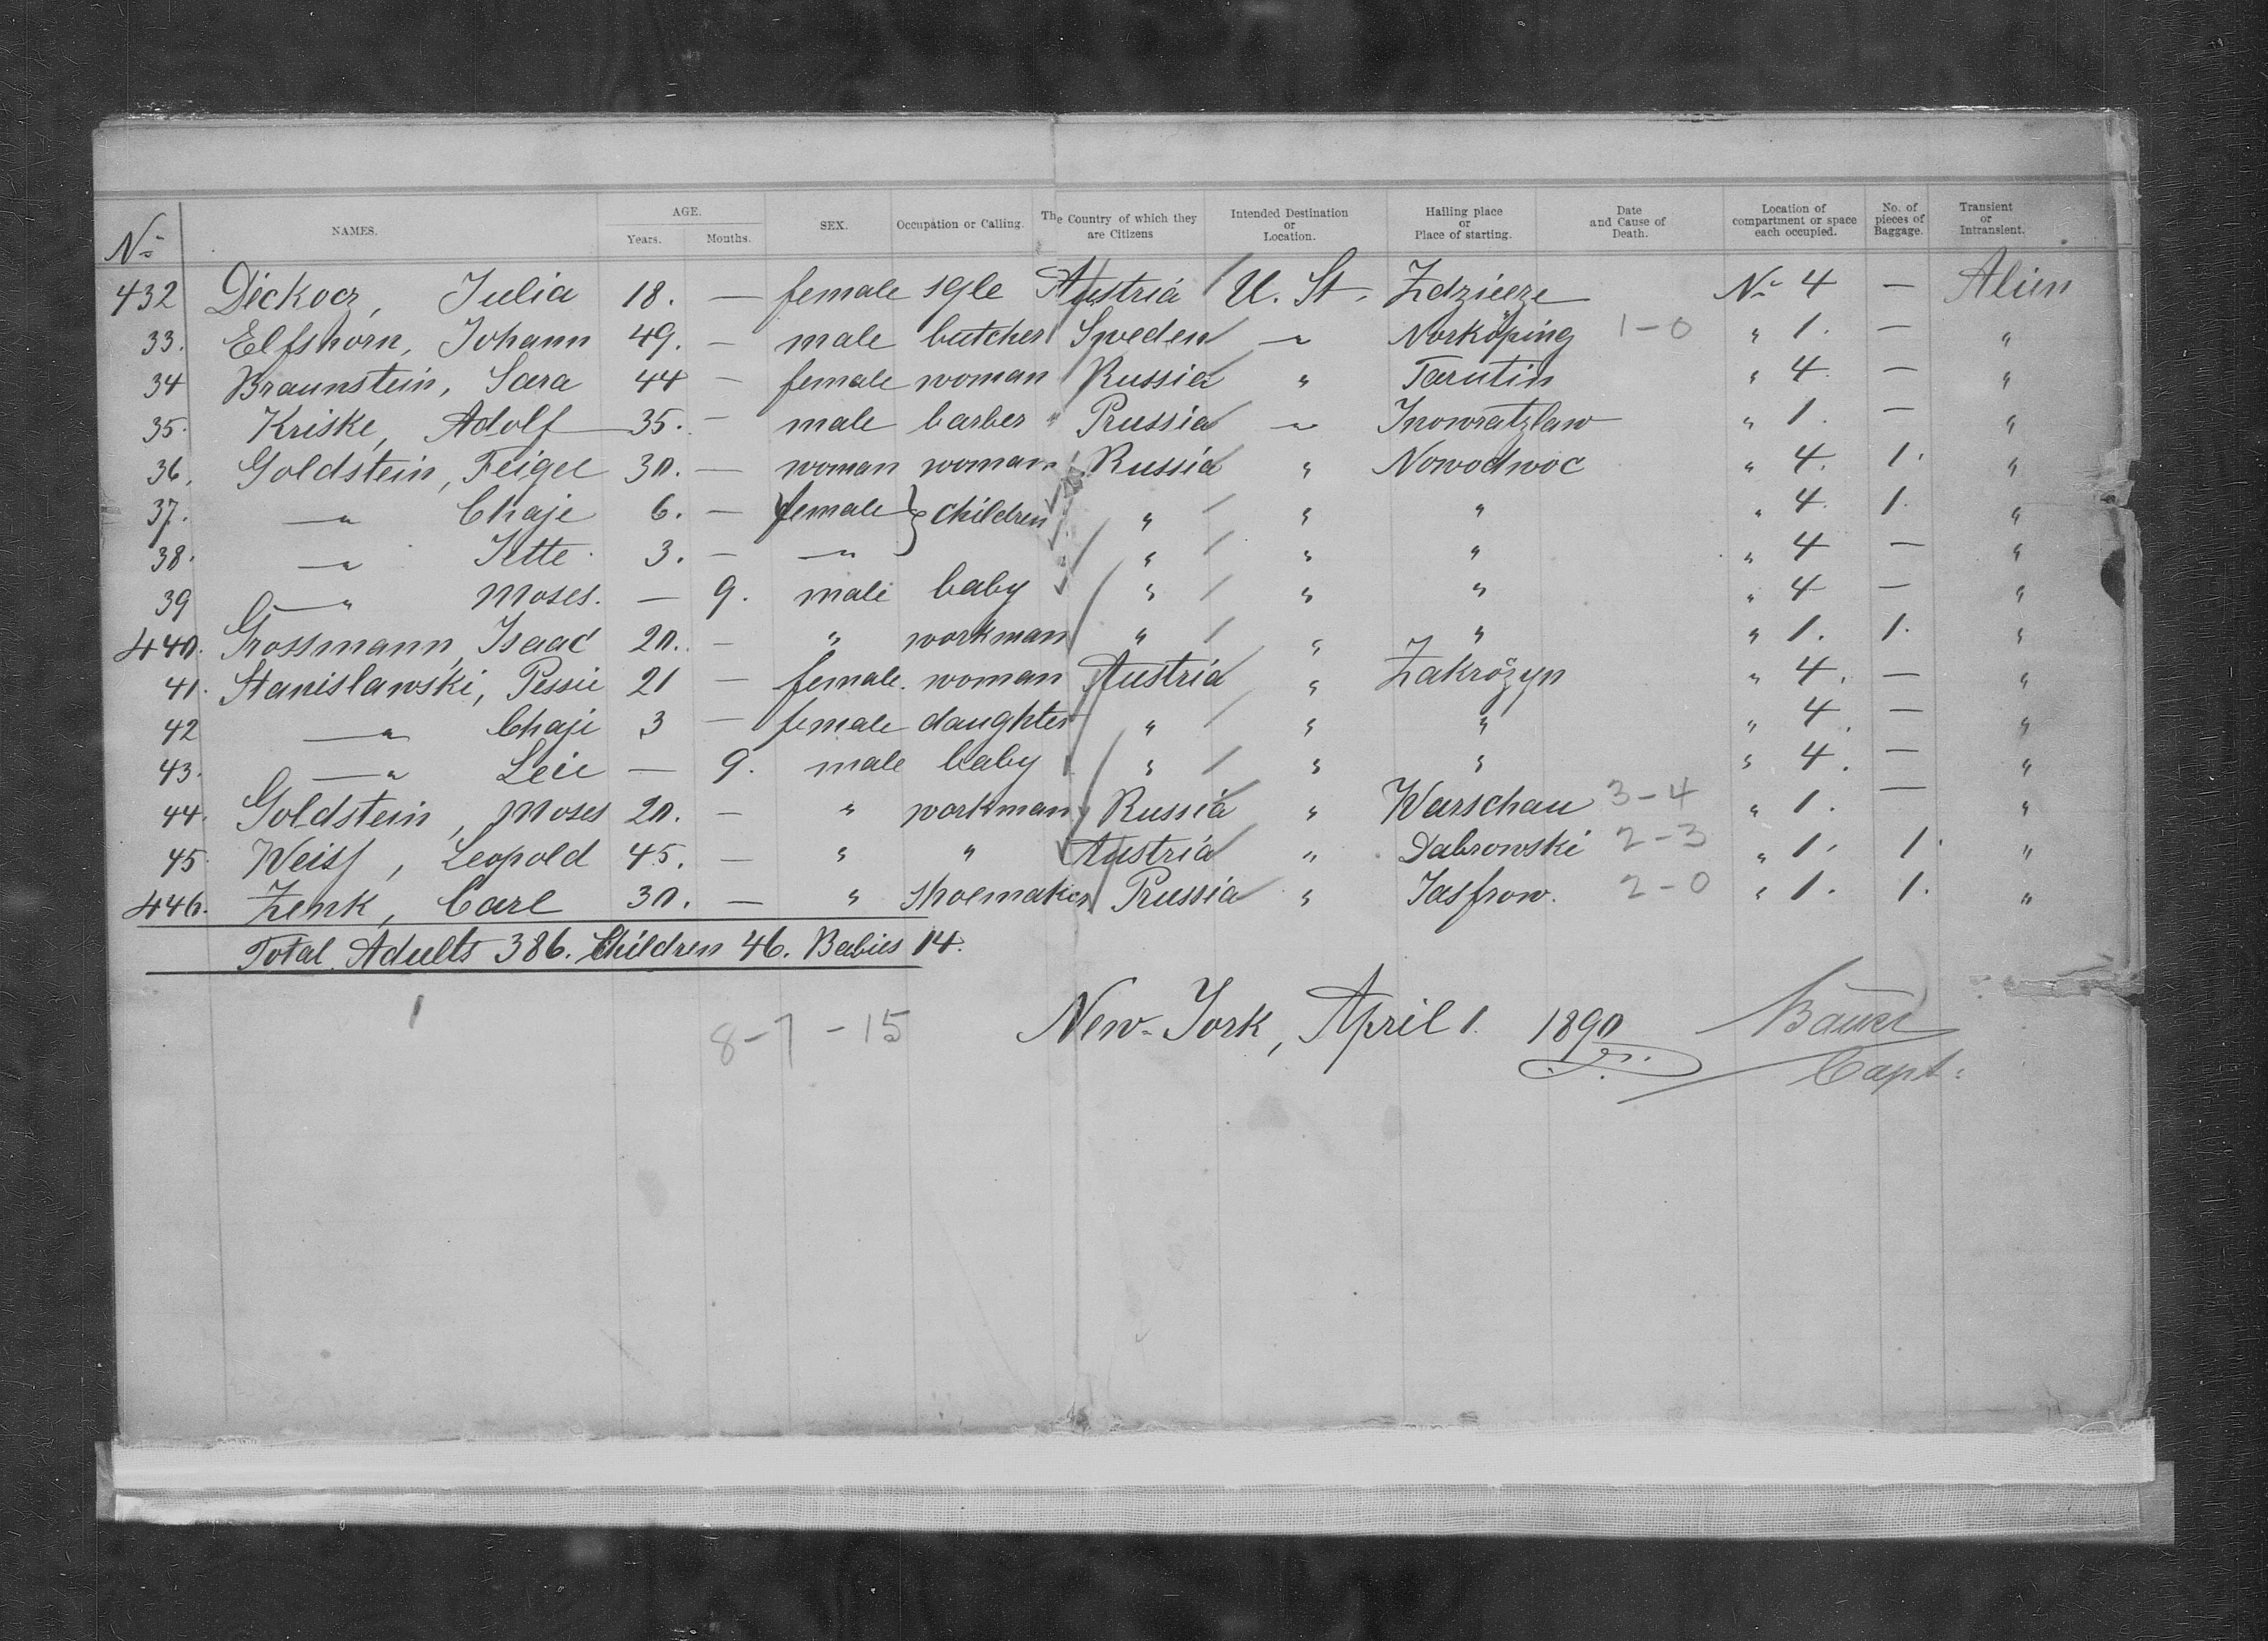 No NAMES. AGE. Years. Months. SEX. Occupation or Calling. The Country of which they are Citizens Intended Destination or Location. Hailing place or Place of starting. Date and Cause of Death. Location of compartment or space each occupied. No. of pieces of Baggage. Transient or Intransient.
432 Dickocz, Julia 18. — female sgle Austria / U. St. Zdzieeze No 4 — Alien
33. Elfshorn, Johann 49. — male butcher Sweden / — " Norköping 1-0 " 1. — "
34 Braunstein, Sara 44 — female woman Russia / " Tarutin " 4 — "
35. Kriske, Adolf 35. — male barber " Prussia / — " Inowratzlaw " 1. — "
36. Goldstein, Feigel 30. — woman woman Russia / " Nowodwoc " 4. 1. "
37. — " Chaje 6. — female } children " / " " " 4. 1. "
38. — " Jette. 3. — — " " / " " " 4 — "
39 — " Moses. — 9. male baby " / " " " 4 — "
440. Grossmann, Isaac 20. — " workman " / " " " 1. 1. "
41. Stanislawski, Pessie 21 — female. woman Austria / " Zakrözyn " 4. — "
42 — " Chaje 3 — female daughter " / " " " 4. — "
43. — " Leie — 9. male baby " / " " " 4. — "
44. Goldstein, Moses 20. — " workman Russia / " Warschau 3-4 " 1. — "
45. Weiss, Leopold 45. — " " Austria / " Dabrowski 2-3 " 1. 1. "
446. Zenk, Carl 30. — " shoemaker Prussia / " Jasfrow. 2-0 " 1. 1. "
Total Adults 386. Children 46. Babies 14.
1 8-7-15 New-York, April 1. 1890
Capt: